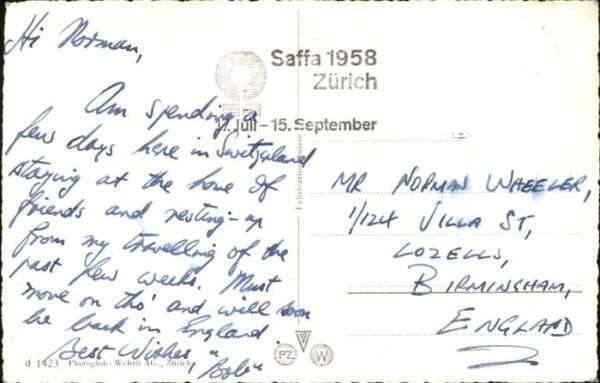 Hi Norman,
Am spending a
few days here in Switzerland
staying at the home of
friends and resting-up
from my travelling of the
past few weeks. Must
move on tho' and will soon
be back in England.
Best Wishes,
"Bob"
Saffa 1958
Zürich
17. Juli – 15. September
MR NORMAN WHEELER,
1/124 VILLA ST,
LOZELLS,
BIRMINGHAM,
ENGLAND
PZ W
d 1423 Photoglob-Wehrli AG., Zürich